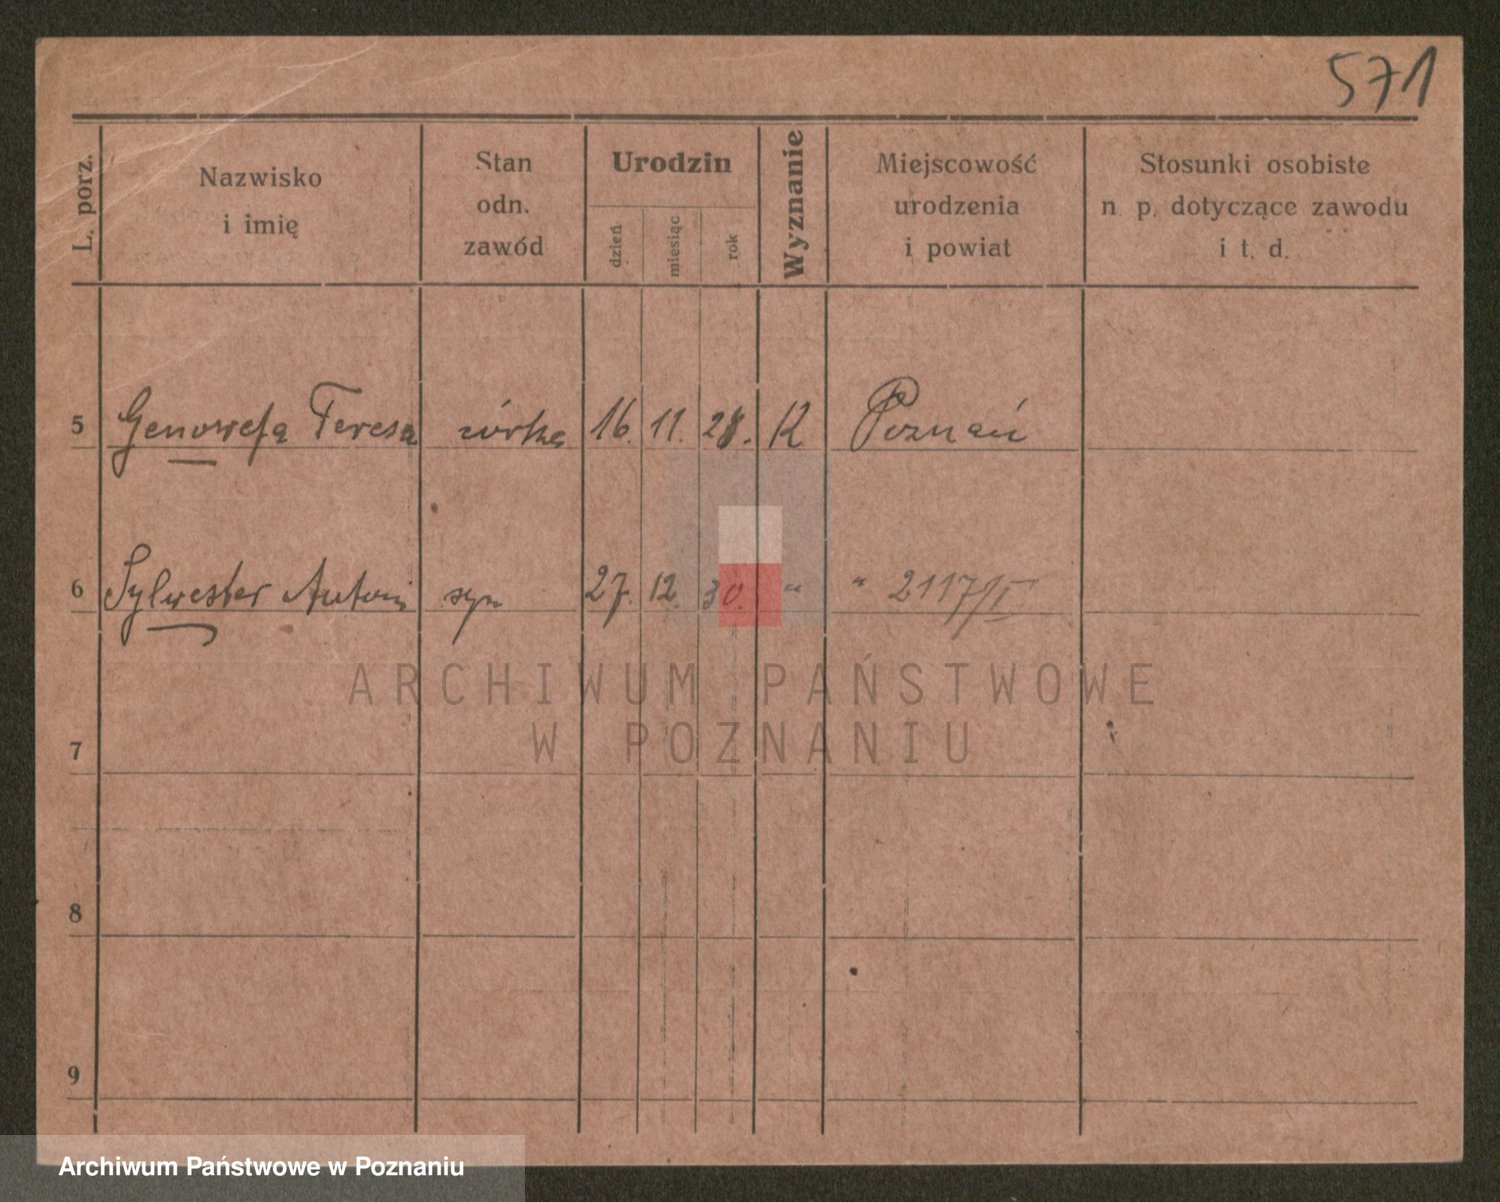 571
L. porz.
Nazwisko
i imię
Stan
odn.
zawód
Urodzin
dzień
miesiąc
rok
Wyznanie
Miejscowość
urodzenia
i powiat
Stosunki osobiste
n p. dotyczące zawodu
i t. d.
5 Genowefa Teresa córka 16. 11. 28. K Poznań
6 Sylwester Antoni syn 27. 12. 30. " " 2117/I
ARCHIWUM PAŃSTWOWE
W POZNANIU
7
8
9
Archiwum Państwowe w Poznaniu